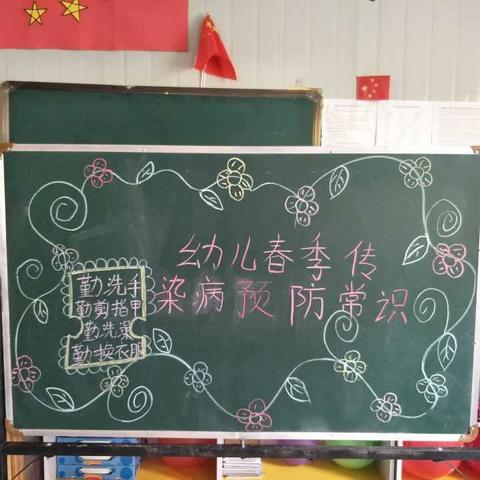 幼儿春季传
染病预防常识
勤洗手
勤剪指甲
勤洗澡
勤换衣服